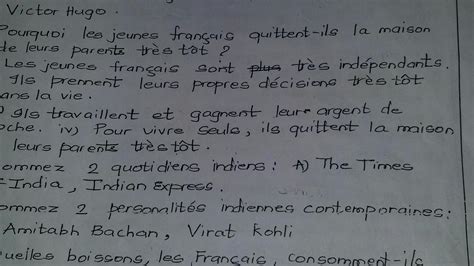 Victor Hugo.
Pourquoi les jeunes français quittent-ils la maison
de leurs parents très tôt ?
Les jeunes français sont plus très indépendants.
Ils prennent leurs propres décisions très tôt
ans la vie.
Ils travaillent et gagnent leur argent de
oche. iv) Pour vivre seuls, ils quittent la maison
leurs parents très tôt.
ommez 2 quotidiens indiens: A) The Times
F India, Indian Express.
ommez 2 personalités indiennes contemporaines:
Amitabh Bachan, Virat Kohli
uelles boissons, les Français, consomment-ils